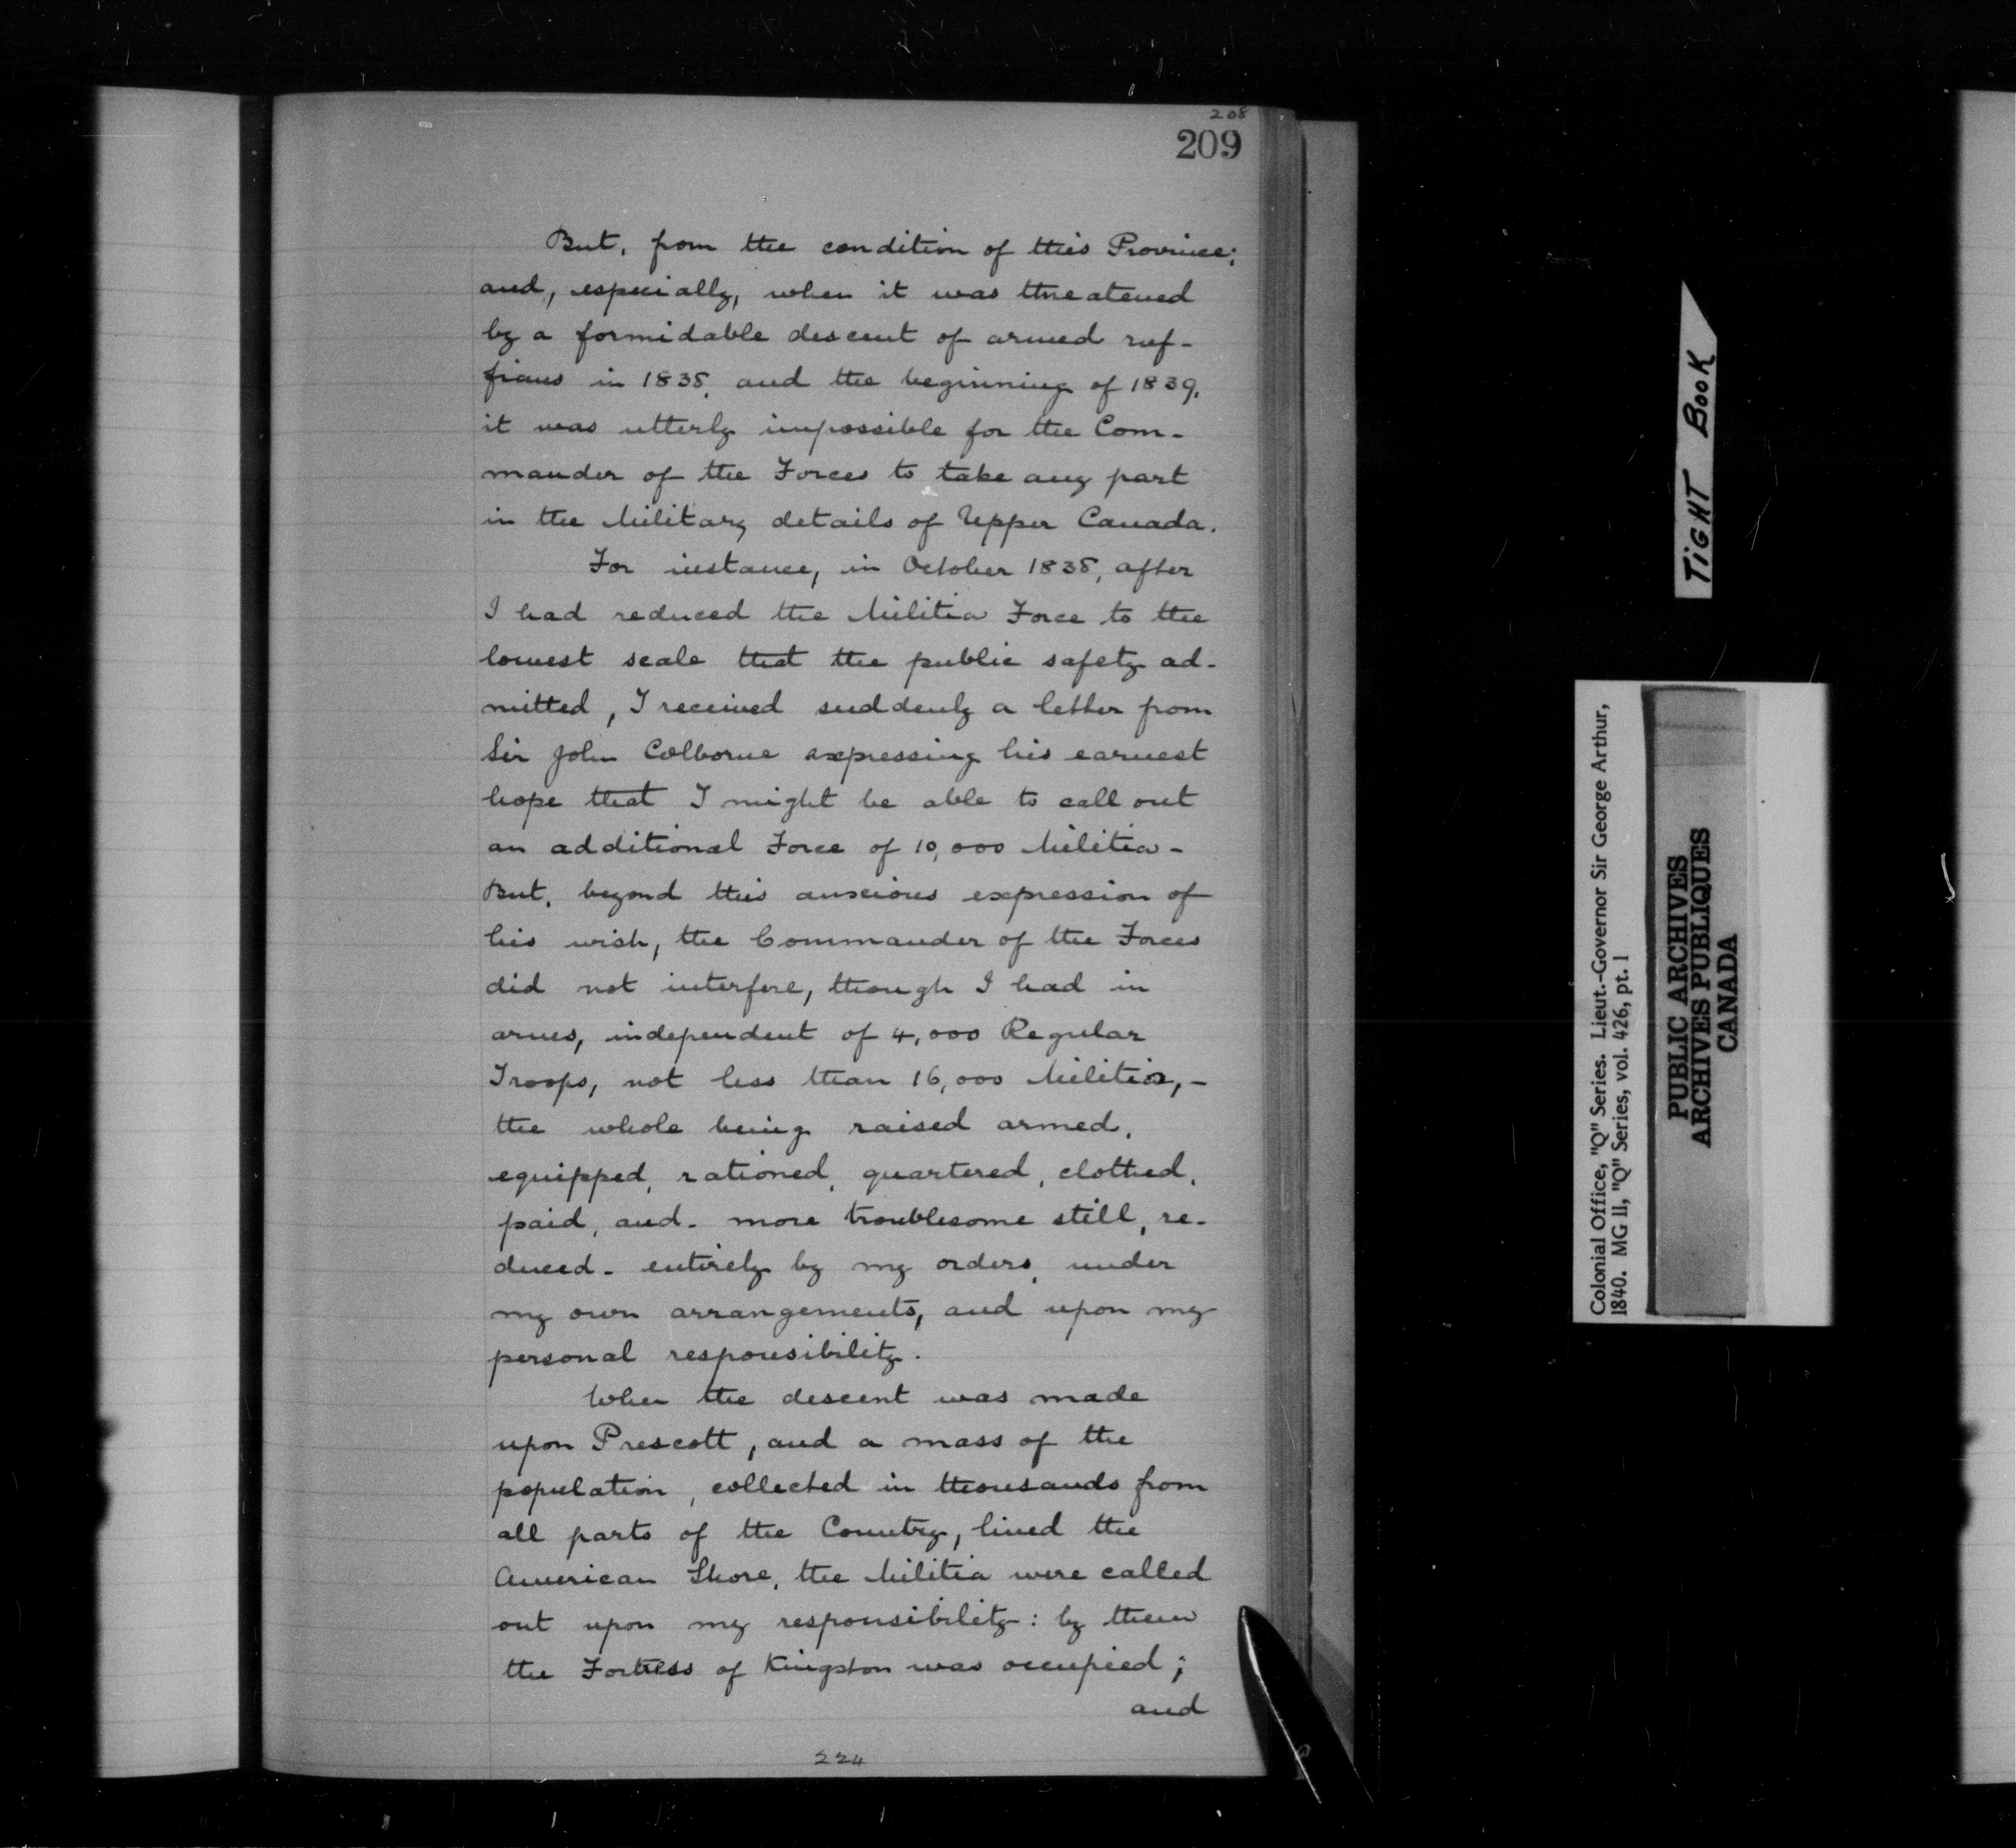 208
209
But, from the condition of this Province;
and, especially, when it was threatened
by a formidable descent of armed ruf-
fians in 1838, and the beginning of 1839,
it was utterly impossible for the Com-
mander of the Forces to take any part
in the Military details of Upper Canada.
For instance, in October 1838, after
I had reduced the Militia Force to the
lowest scale that the public safety ad-
mitted, I received suddenly a letter from
Sir John Colborne expressing his earnest
hope that I might be able to call out
an additional Force of 10,000 Militia -
But, beyond this anxious expression of
his wish, the Commander of the Forces
did not interfere, though I had in
arms, independent of 4,000 Regular
Troops, not less than 16,000 Militia, -
the whole being raised armed,
equipped, rationed, quartered, clothed,
paid, and - more troublesome still, re-
duced - entirely by my orders, under
my own arrangements, and upon my
personal responsibility.
When the descent was made
upon Prescott, and a mass of the
population, collected in thousands from
all parts of the Country, lined the
American Shore, the Militia were called
out upon my responsibility: by them
the Fortress of Kingston was occupied;
and
224
TIGHT BOOK
Colonial Office, "Q" Series. Lieut.-Governor Sir George Arthur,
1840. MG 11, "Q" Series, vol. 426, pt. 1
PUBLIC ARCHIVES
ARCHIVES PUBLIQUES
CANADA